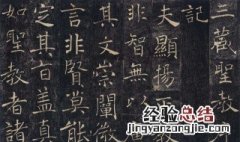 三藏聖教
記
夫顯揚
非智無
其文崇闡
言非賢莫能
定其旨蓋真
如聖教者諸
经验总结
jingyanzongjie.com